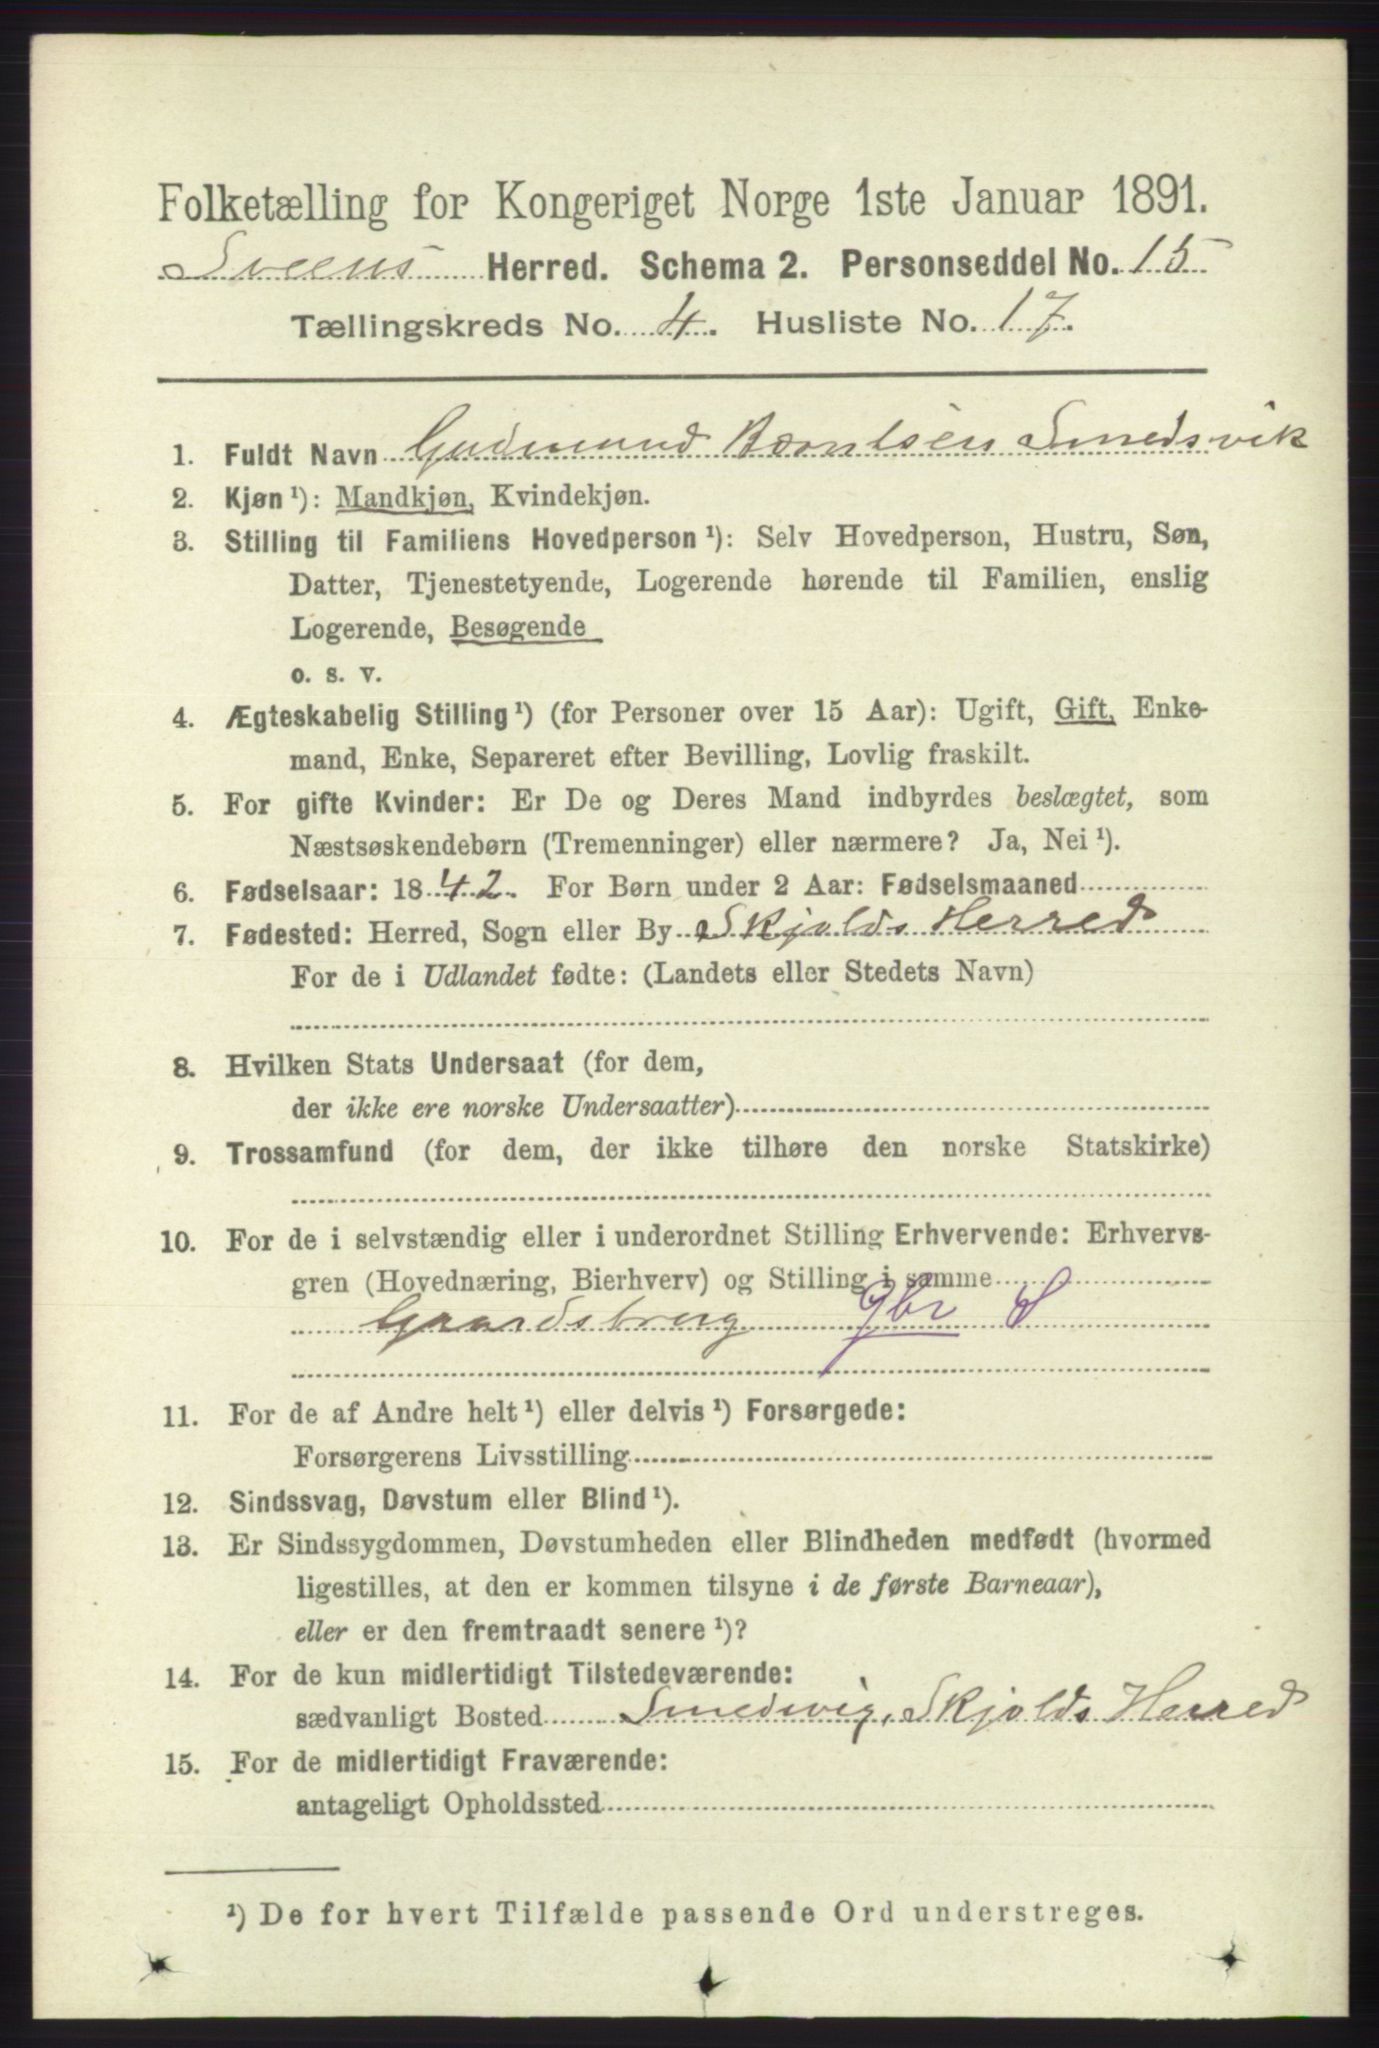 Folketælling for Kongeriget Norge 1ste Januar 1891.
Sveens Herred. Schema 2. Personseddel No. 15
Tællingskreds No. 4. Husliste No. 17.
1. Fuldt Navn Gudmund Berntsen Smedsvik
2. Kjøn ¹): Mandkjøn, Kvindekjøn.
3. Stilling til Familiens Hovedperson ¹): Selv Hovedperson, Hustru, Søn,
Datter, Tjenestetyende, Logerende hørende til Familien, enslig
Logerende, Besøgende
o. s. v.
4. Ægteskabelig Stilling ¹) (for Personer over 15 Aar): Ugift, Gift, Enke-
mand, Enke, Separeret efter Bevilling, Lovlig fraskilt.
5. For gifte Kvinder: Er De og Deres Mand indbyrdes beslægtet, som
Næstsøskendebørn (Tremenninger) eller nærmere? Ja, Nei ¹).
6. Fødselsaar: 1842. For Børn under 2 Aar: Fødselsmaaned
7. Fødested: Herred, Sogn eller By Skjolds Herred
For de i Udlandet fødte: (Landets eller Stedets Navn)
8. Hvilken Stats Undersaat (for dem,
der ikke ere norske Undersaatter)
9. Trossamfund (for dem, der ikke tilhøre den norske Statskirke)
10. For de i selvstændig eller i underordnet Stilling Erhvervende: Erhvervs-
gren (Hovednæring, Bierhverv) og Stilling i samme
Gaardsbrug gbr S
11. For de af Andre helt ¹) eller delvis ¹) Forsørgede:
Forsørgerens Livsstilling
12. Sindssvag, Døvstum eller Blind ¹).
13. Er Sindssygdommen, Døvstumheden eller Blindheden medfødt (hvormed
ligestilles, at den er kommen tilsyne i de første Barneaar),
eller er den fremtraadt senere ¹)?
14. For de kun midlertidigt Tilstedeværende:
sædvanligt Bosted Smedvig, Skjolds Herred
15. For de midlertidigt Fraværende:
antageligt Opholdssted
¹) De for hvert Tilfælde passende Ord understreges.